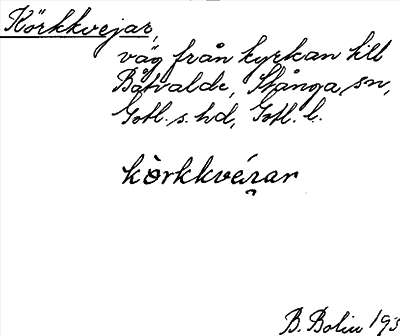 Körkkvejar,
väg från kyrkan till
Båtvalde, Stånga sn,
Gotl. s. hd, Gotl. l.
kòrkkvéi̯ar
B. Bolin 193